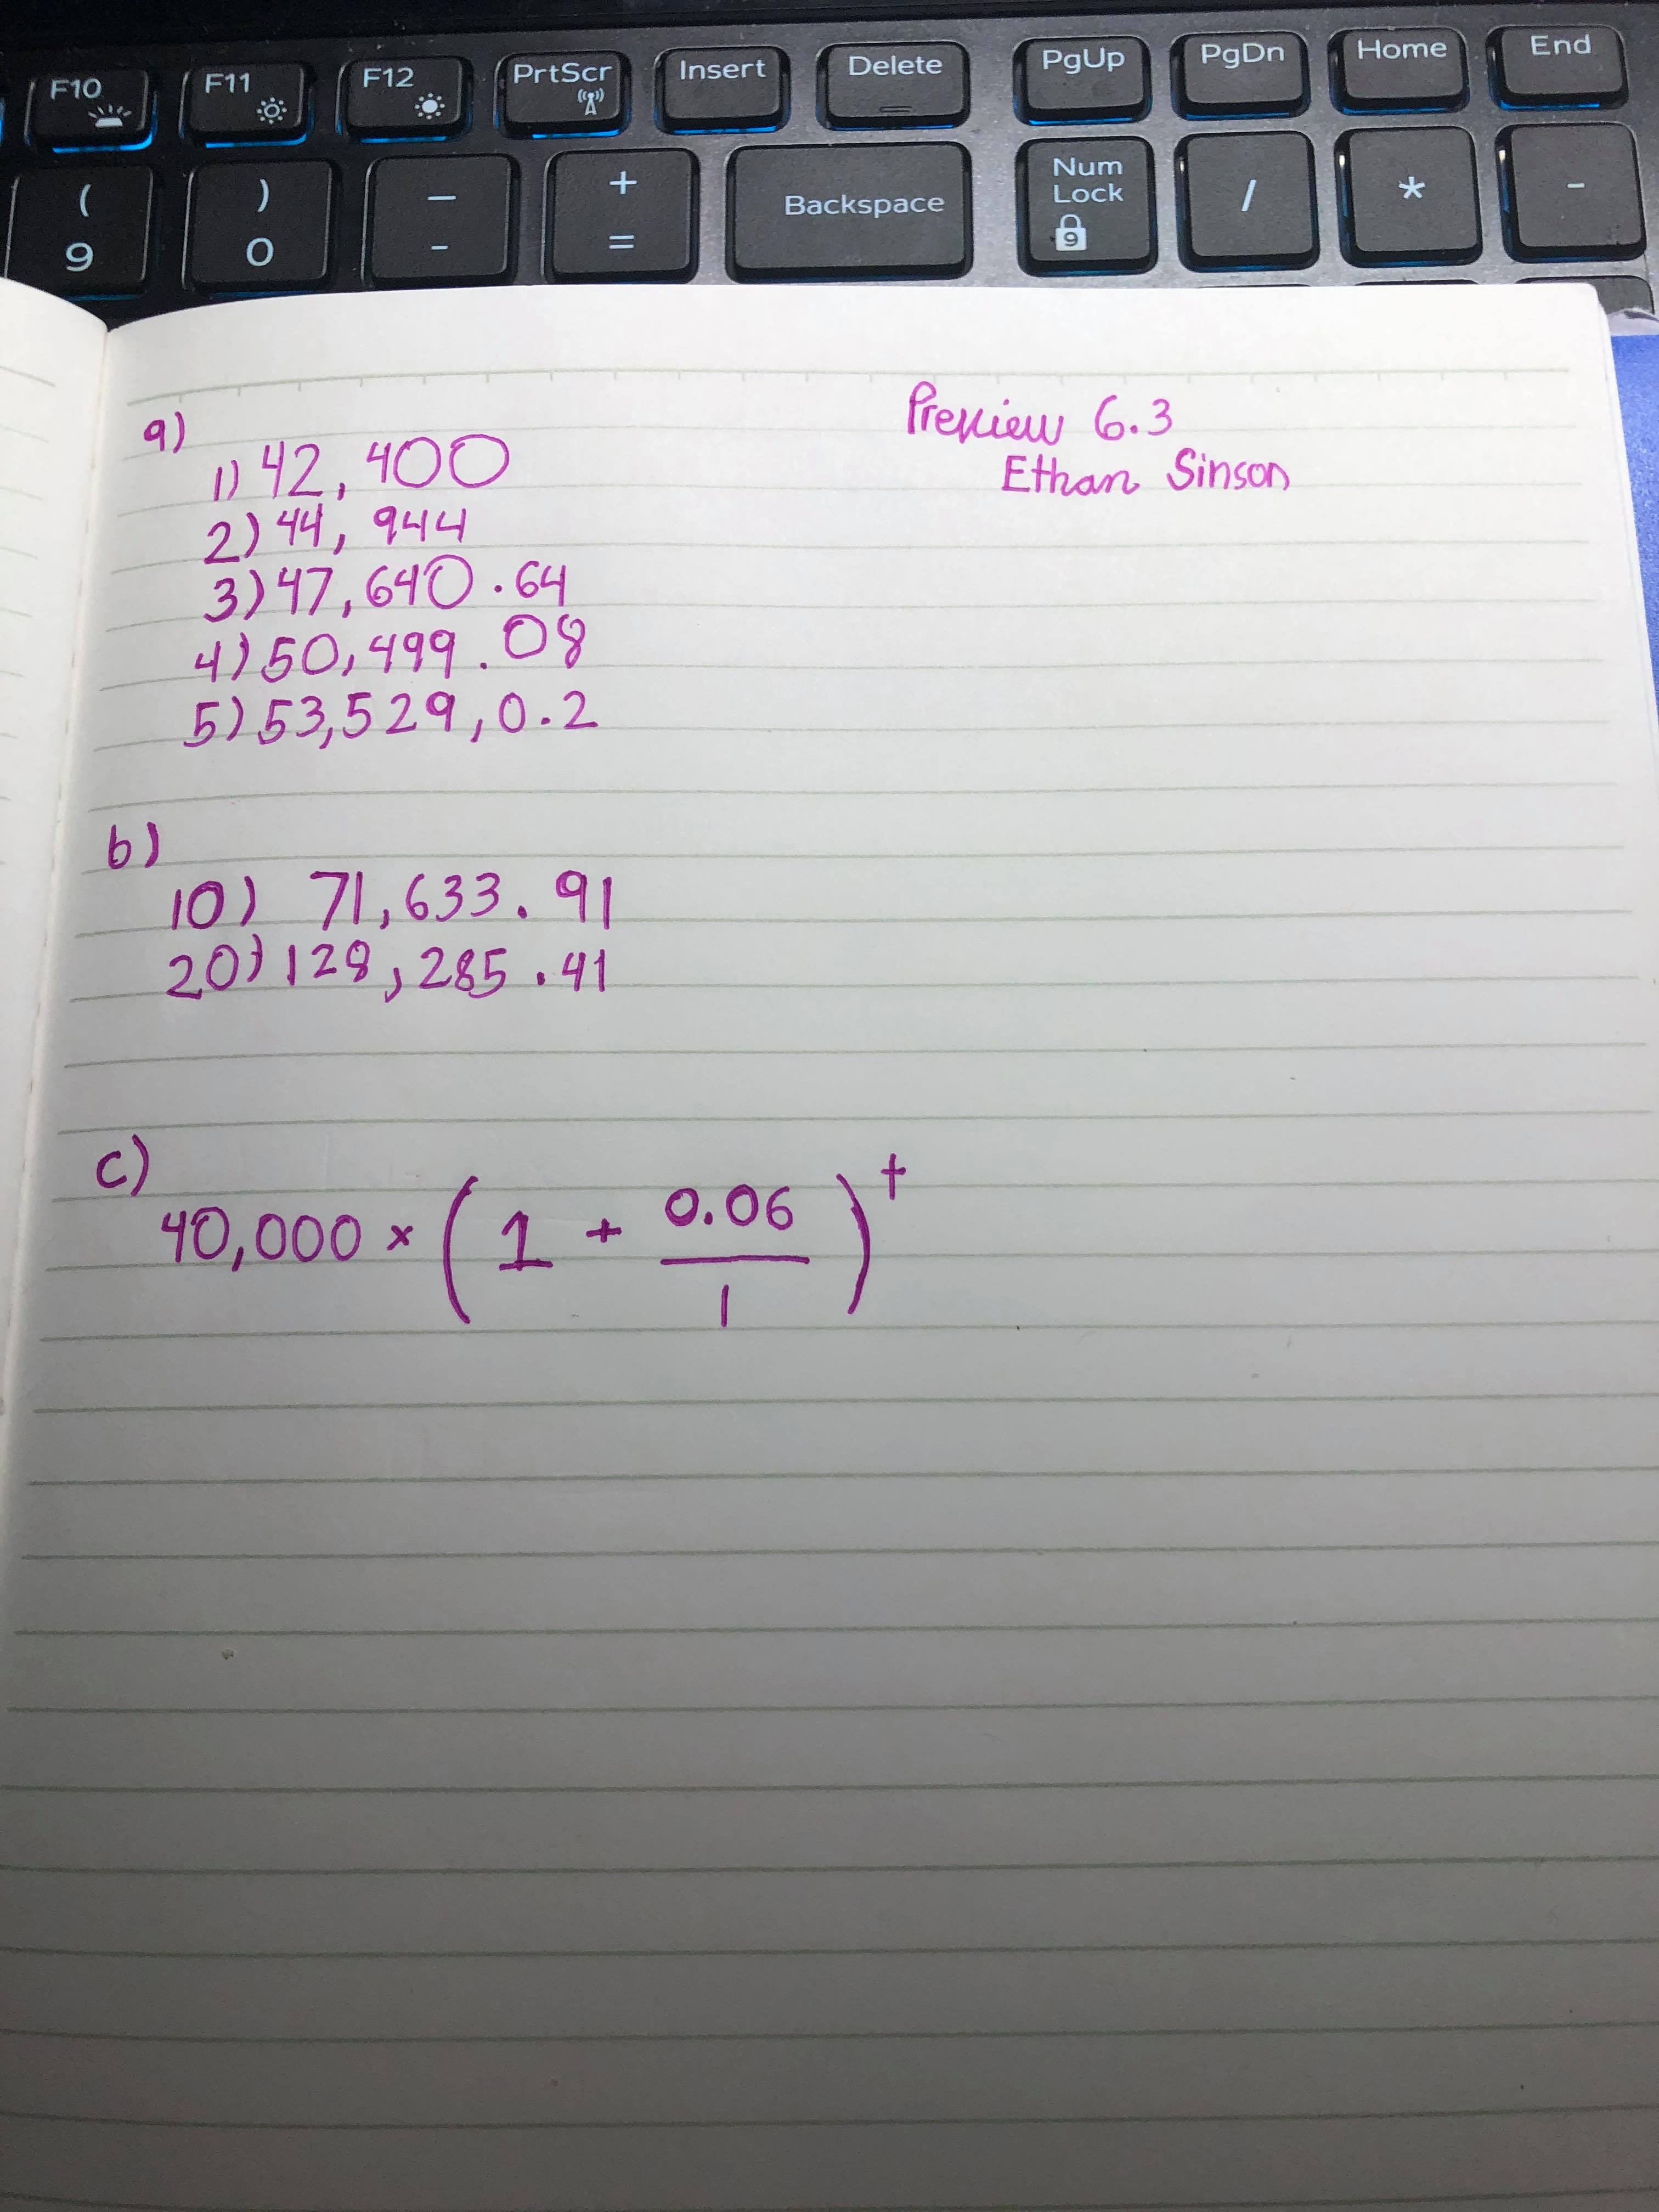 F10 F11 F12 PrtScr Insert Delete PgUp PgDn Home End
( ) — + Backspace Num Lock / * -
9 0 - = 9
a) Preview 6.3
1) 42,400 Ethan Sinson
2) 44, 944
3) 47,640.64
4) 50,499.08
5) 53,529,0.2
b)
10) 71,633.91
20) 128,285.41
c)
40,000 × ( 1 + 0.06 / 1 )^t